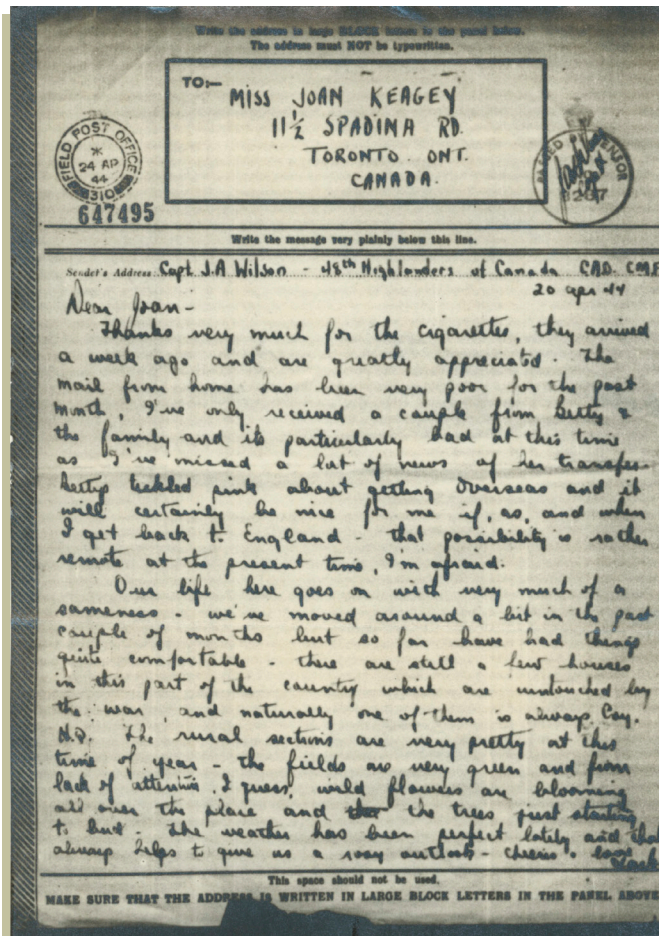 Write the address in large BLOCK letters in the panel below.
The address must NOT be typewritten.
TO:—
MISS JOAN KEAGEY
11½ SPADINA RD.
TORONTO. ONT.
CANADA.
FIELD POST OFFICE
24 AP
44
310
647495
PASSED CENSOR
Write the message very plainly below this line.
Sender's Address Capt J.A Wilson - 48th Highlanders of Canada CAO. CMF
20 apr 44
Dear Joan -
Thanks very much for the cigarettes, they arrived
a week ago and are greatly appreciated. The
mail from home has been very poor for the past
month, I've only received a couple from Betty &
the family and its particularly bad at this time
as I've missed a lot of news of her transfer.
Bettys tickled pink about getting overseas and it
will certainly be nice for me if, as, and when
I get back to England - that possibility is rather
remote at the present time, I'm afraid.
Our life here goes on with very much of a
sameness - we've moved around a bit in the past
couple of months but so far have had things
quite comfortable - there are still a few houses
in this part of the country which are untouched by
the war, and naturally one of them is always Coy.
H.Q. The rural sections are very pretty at this
time of year - the fields are very green and from
lack of attention, I guess, wild flowers are blooming
all over the place and the trees just starting
to bud. The weather has been perfect lately and that
always helps to give us a rosy outlook - cheerio. love
This space should not be used.
MAKE SURE THAT THE ADDRESS IS WRITTEN IN LARGE BLOCK LETTERS IN THE PANEL ABOVE